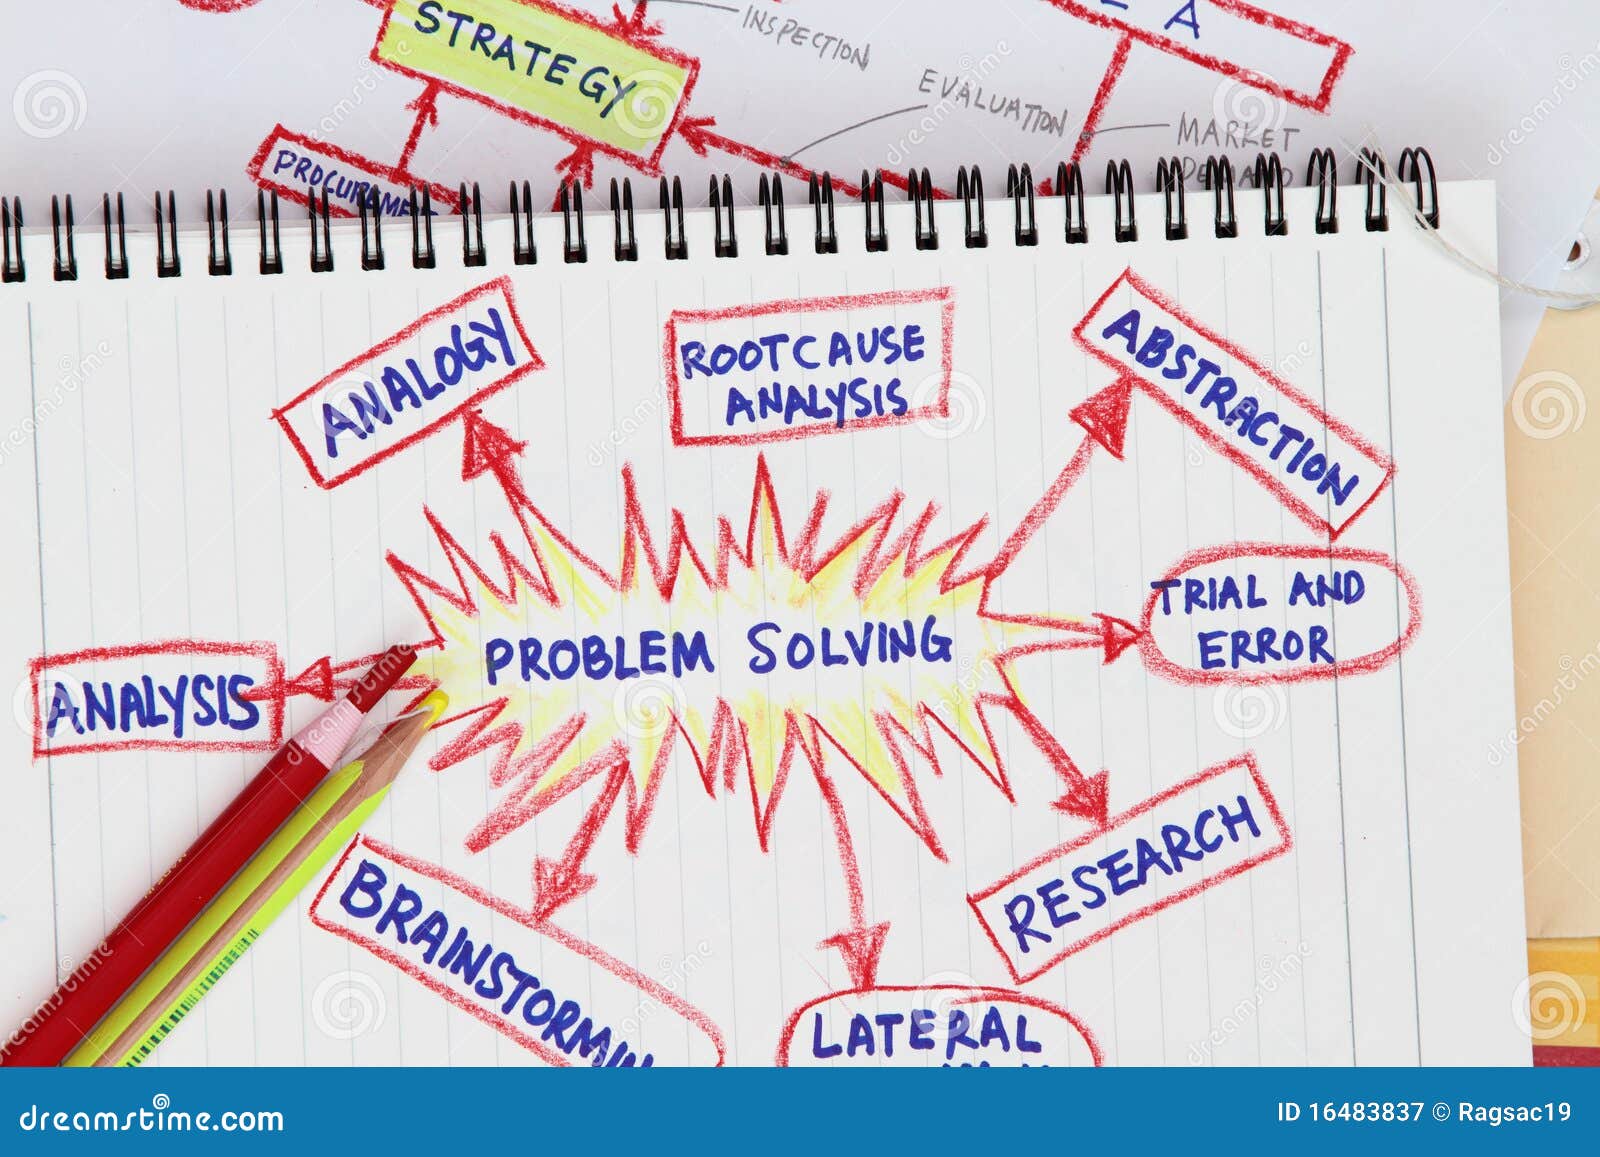 STRATEGY
INSPECTION
EVALUATION
MARKET
PROCUREMENT
ANALOGY
ROOT CAUSE
ANALYSIS
ABSTRACTION
TRIAL AND
ERROR
PROBLEM SOLVING
ANALYSIS
RESEARCH
BRAINSTORMIN
LATERAL
dreamstime.com
ID 16483837 © Ragsac19